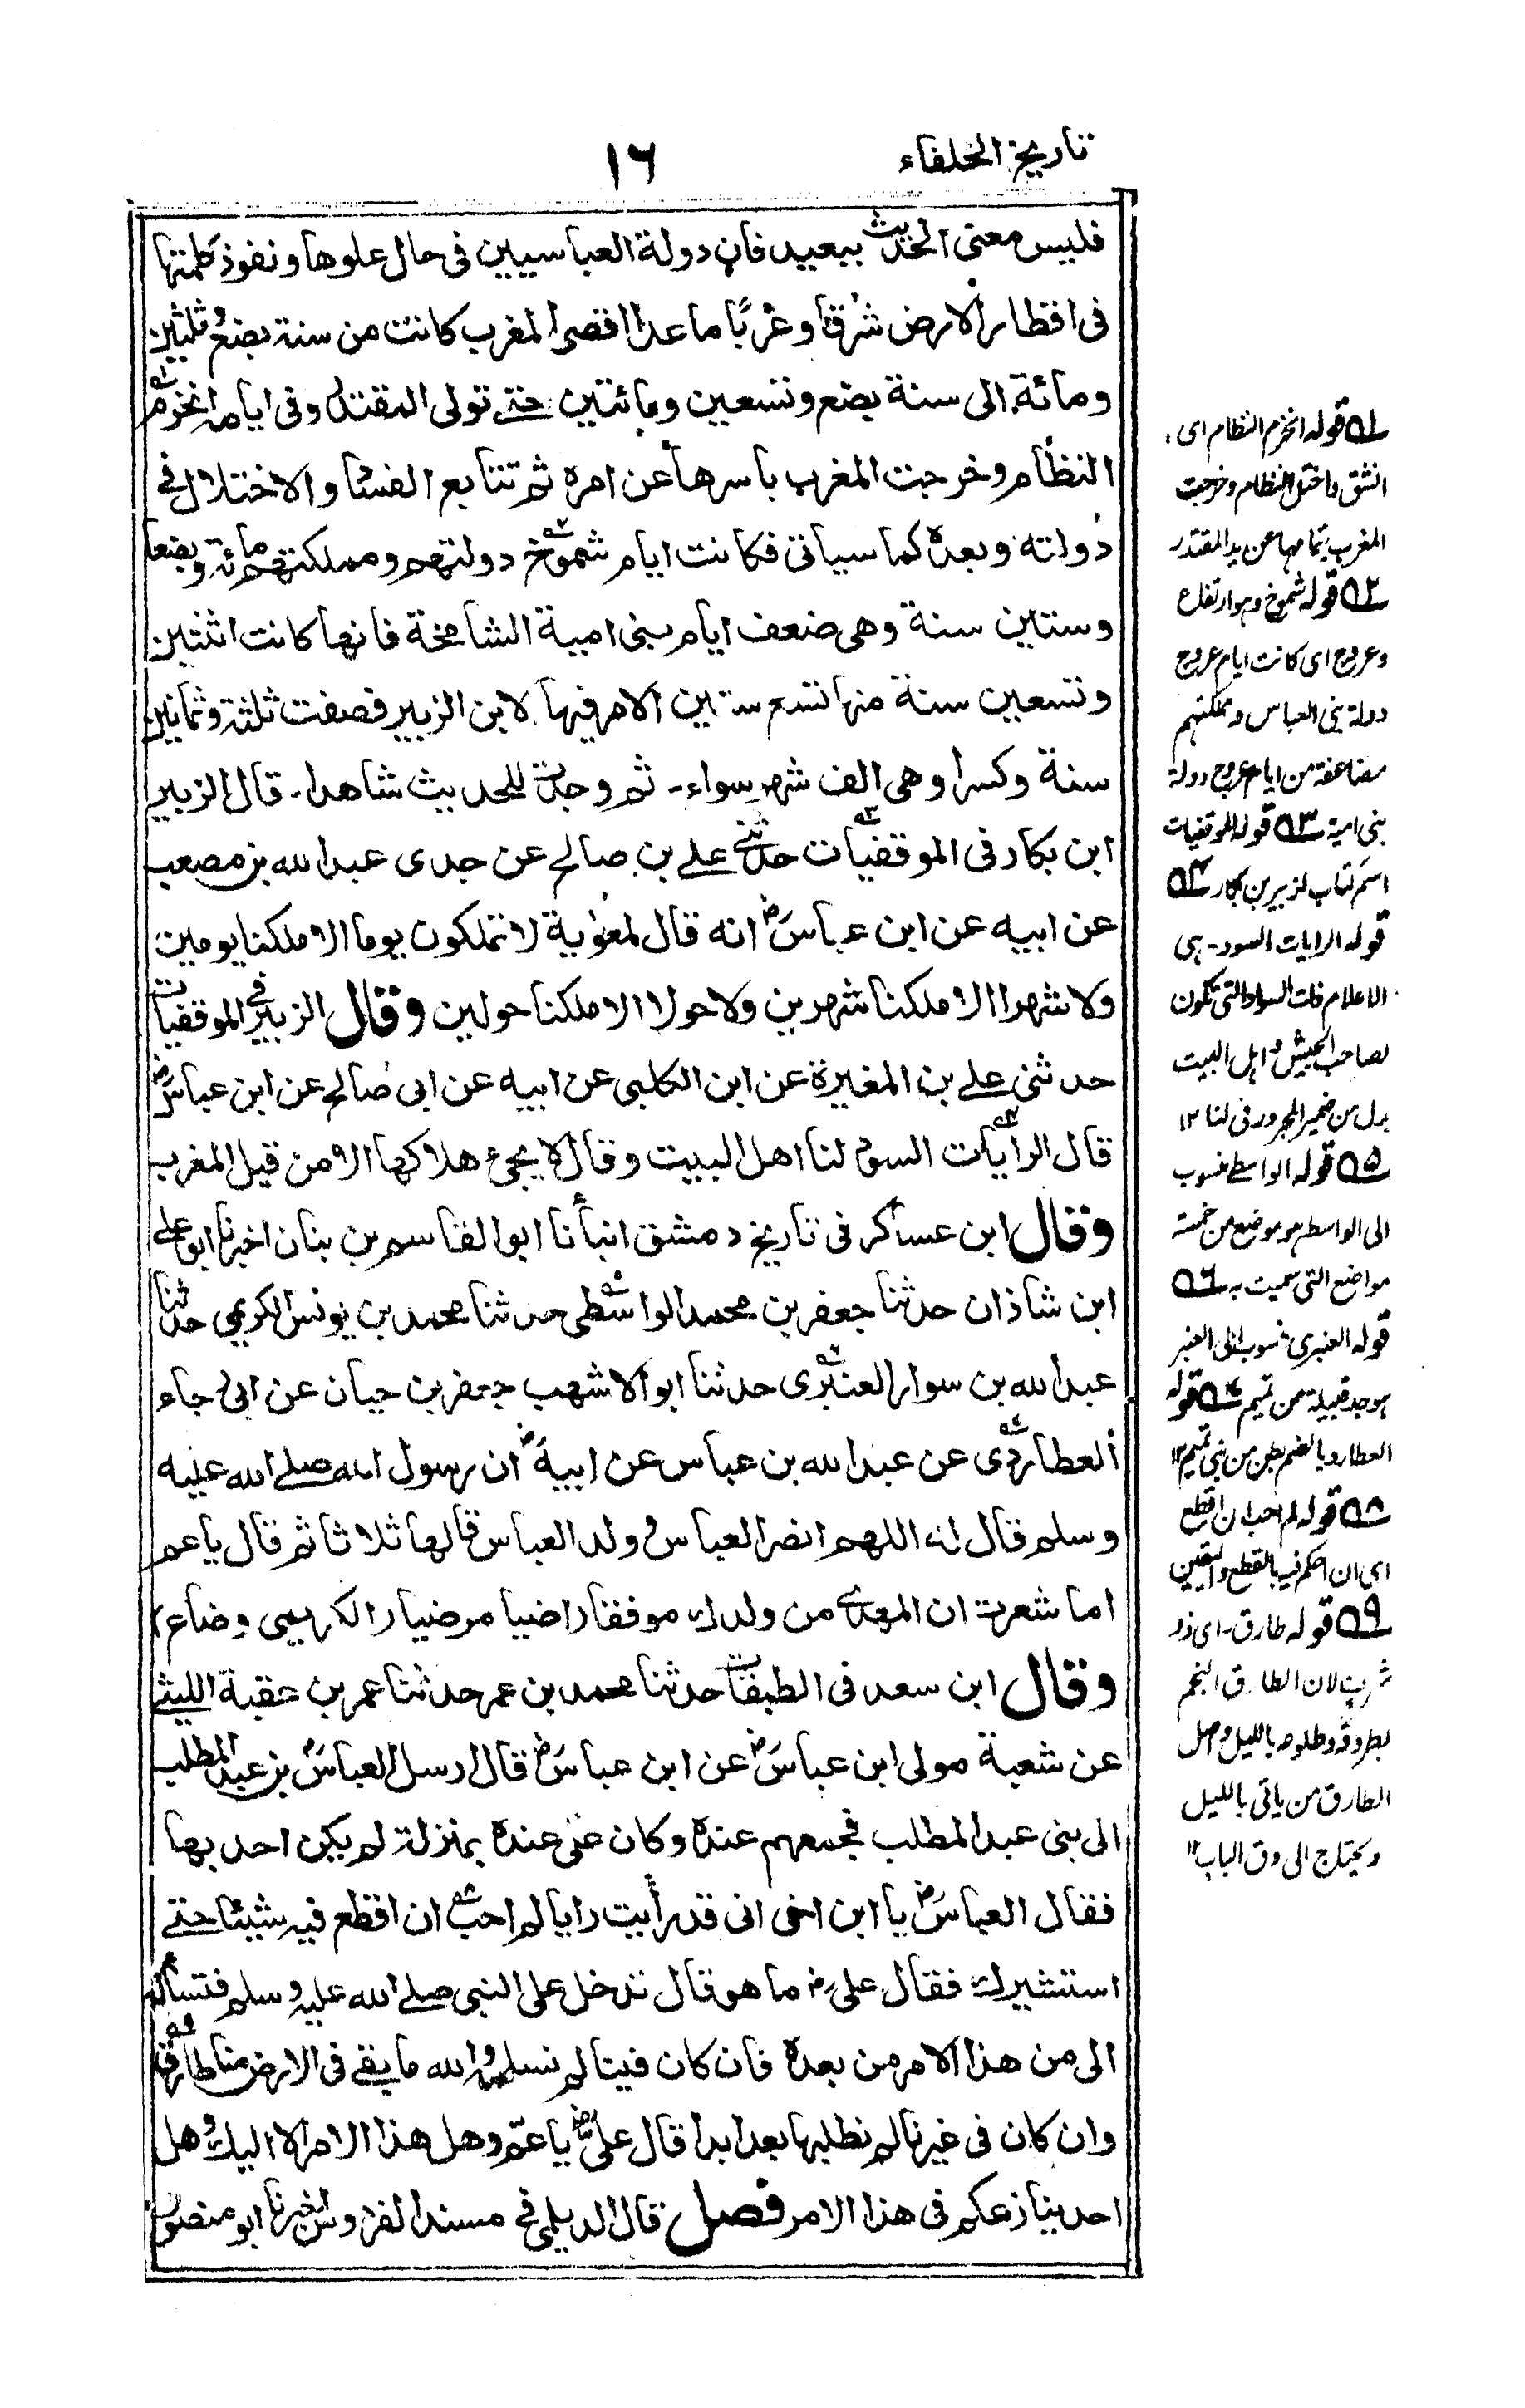 تاريخ الخلفاء
١٦
فليس معنى الحديث ببعيد فان دولة العباسيين فى حال علوها ونفوذ كلمتها
فى اقطار الارض شرقا وغربًا ما عدا اقصى المغرب كانت من سنة بضع وثلثين
ومائة الى سنة بضع وتسعين ومائتين حتى تولى المقتدر وفى ايامه انخرم
النظام وخرجت المغرب باسرها عن امره ثم تتابع الفساد والاختلال فى
دولته وبعده كما سياتى فكانت ايام شموخ دولتهم ومملكتهم مائة وبضعا
وستين سنة وهى ضعف ايام بنى امية الشامخة فانها كانت اثنتين
وتسعين سنة منها تسع سنين الامر فيها لابن الزبير فصفت ثلثة وثمانين
سنة وكسرا وهى الف شهر سواء۔ ثم وجدت للحديث شاهدا۔ قال الزبير
ابن بكار فى الموفقيات حدثنى على بن صالح عن جدى عبد الله بن مصعب
عن ابيه عن ابن عباس رض انه قال لمعوية لا تملكون يوما الا ملكنا يومين
ولا شهرا الا ملكنا شهرين ولا حولا الا ملكنا حولين وقال الزبير فى الموفقيات
حدثنى على بن المغيرة عن ابن الكلبى عن ابيه عن ابى صالح عن ابن عباس رض
قال الرايات السود لنا اهل البيت وقال لا يجىء هلاكها الا من قبل المغرب
وقال ابن عساكر فى تاريخ دمشق انبأنا ابو القاسم بن بنان اخبرنا ابو على
ابن شاذان حدثنا جعفر بن محمد الواسطى حدثنا محمد بن يونس الكديمى حدثنا
عبد الله بن سوار العنبرى حدثنا ابو الاشهب جعفر بن حيان عن ابى رجاء
العطاردى عن عبد الله بن عباس عن ابيه رض ان رسول الله صلى الله عليه
وسلم قال له اللهم انصر العباس وولد العباس قالها ثلاثا ثم قال يا عم
اما شعرت ان المهدى من ولدك موفقا راضيا مرضيا (الكديمى وضاع)
وقال ابن سعد فى الطبقات حدثنا محمد بن عمر حدثنا عمر بن عقبة الليثى
عن شعبة مولى ابن عباس رض عن ابن عباس رض قال ارسل العباس بن عبد المطلب
الى بنى عبد المطلب فجمعهم عنده وكان على عنده بمنزلة لم يكن احد بها
فقال العباس رض يا ابن اخى انى قد رأيت رايا لم احب ان اقطع فيه شيئا حتى
استشيرك فقال على رض ما هو قال تدخل على النبى صلى الله عليه وسلم فتسأله
الى من هذا الامر من بعده فان كان فينا لم نسلمه والله ما بقى فى الارض منا طارق
وان كان فى غيرنا لم نطلبها بعد ابدا قال على رض يا عمّ وهل هذا الامر الا اليك وهل
احد ينازعكم فى هذا الامر فصل قال الديلمى فى مسند الفردوس اخبرنا ابو منصور
١ه قوله انخرم النظام اى
انشق واختل النظام وخرجت
المغرب بتمامها عن يد المقتدر
٢ه قوله شموخ وهو ارتفاع
وعروج اى كانت ايام عروج
دولة بنى العباس ومملكتهم
مضاعفة من ايام عروج دولة
بنى امية ٣ه قوله الموفقيات
اسم كتاب لزبير بن بكار ٤ه
قوله الرايات السود۔ هى
الاعلام ذات السواد التى تكون
لصاحب الجيش واهل البيت
بدل من ضمير المجرور فى لنا ١٢
٥ه قوله الواسطى منسوب
الى الواسط هو موضع من خمسة
مواضع التى سميت به ٦ه
قوله العنبرى منسوب الى العنبر
هو جد قبيلة من تميم ٧ه قوله
العطارد بالضم بطن من بنى تميم ١٢
٨ه قوله لم احب ان اقطع
اى ان احكم فيه بالقطع واليقين
٩ه قوله طارق۔ اى ذو
شرف لان الطارق النجم
لطروقه وطلوعه بالليل واصل
الطارق من ياتى بالليل
ويحتاج الى دق الباب ١٢